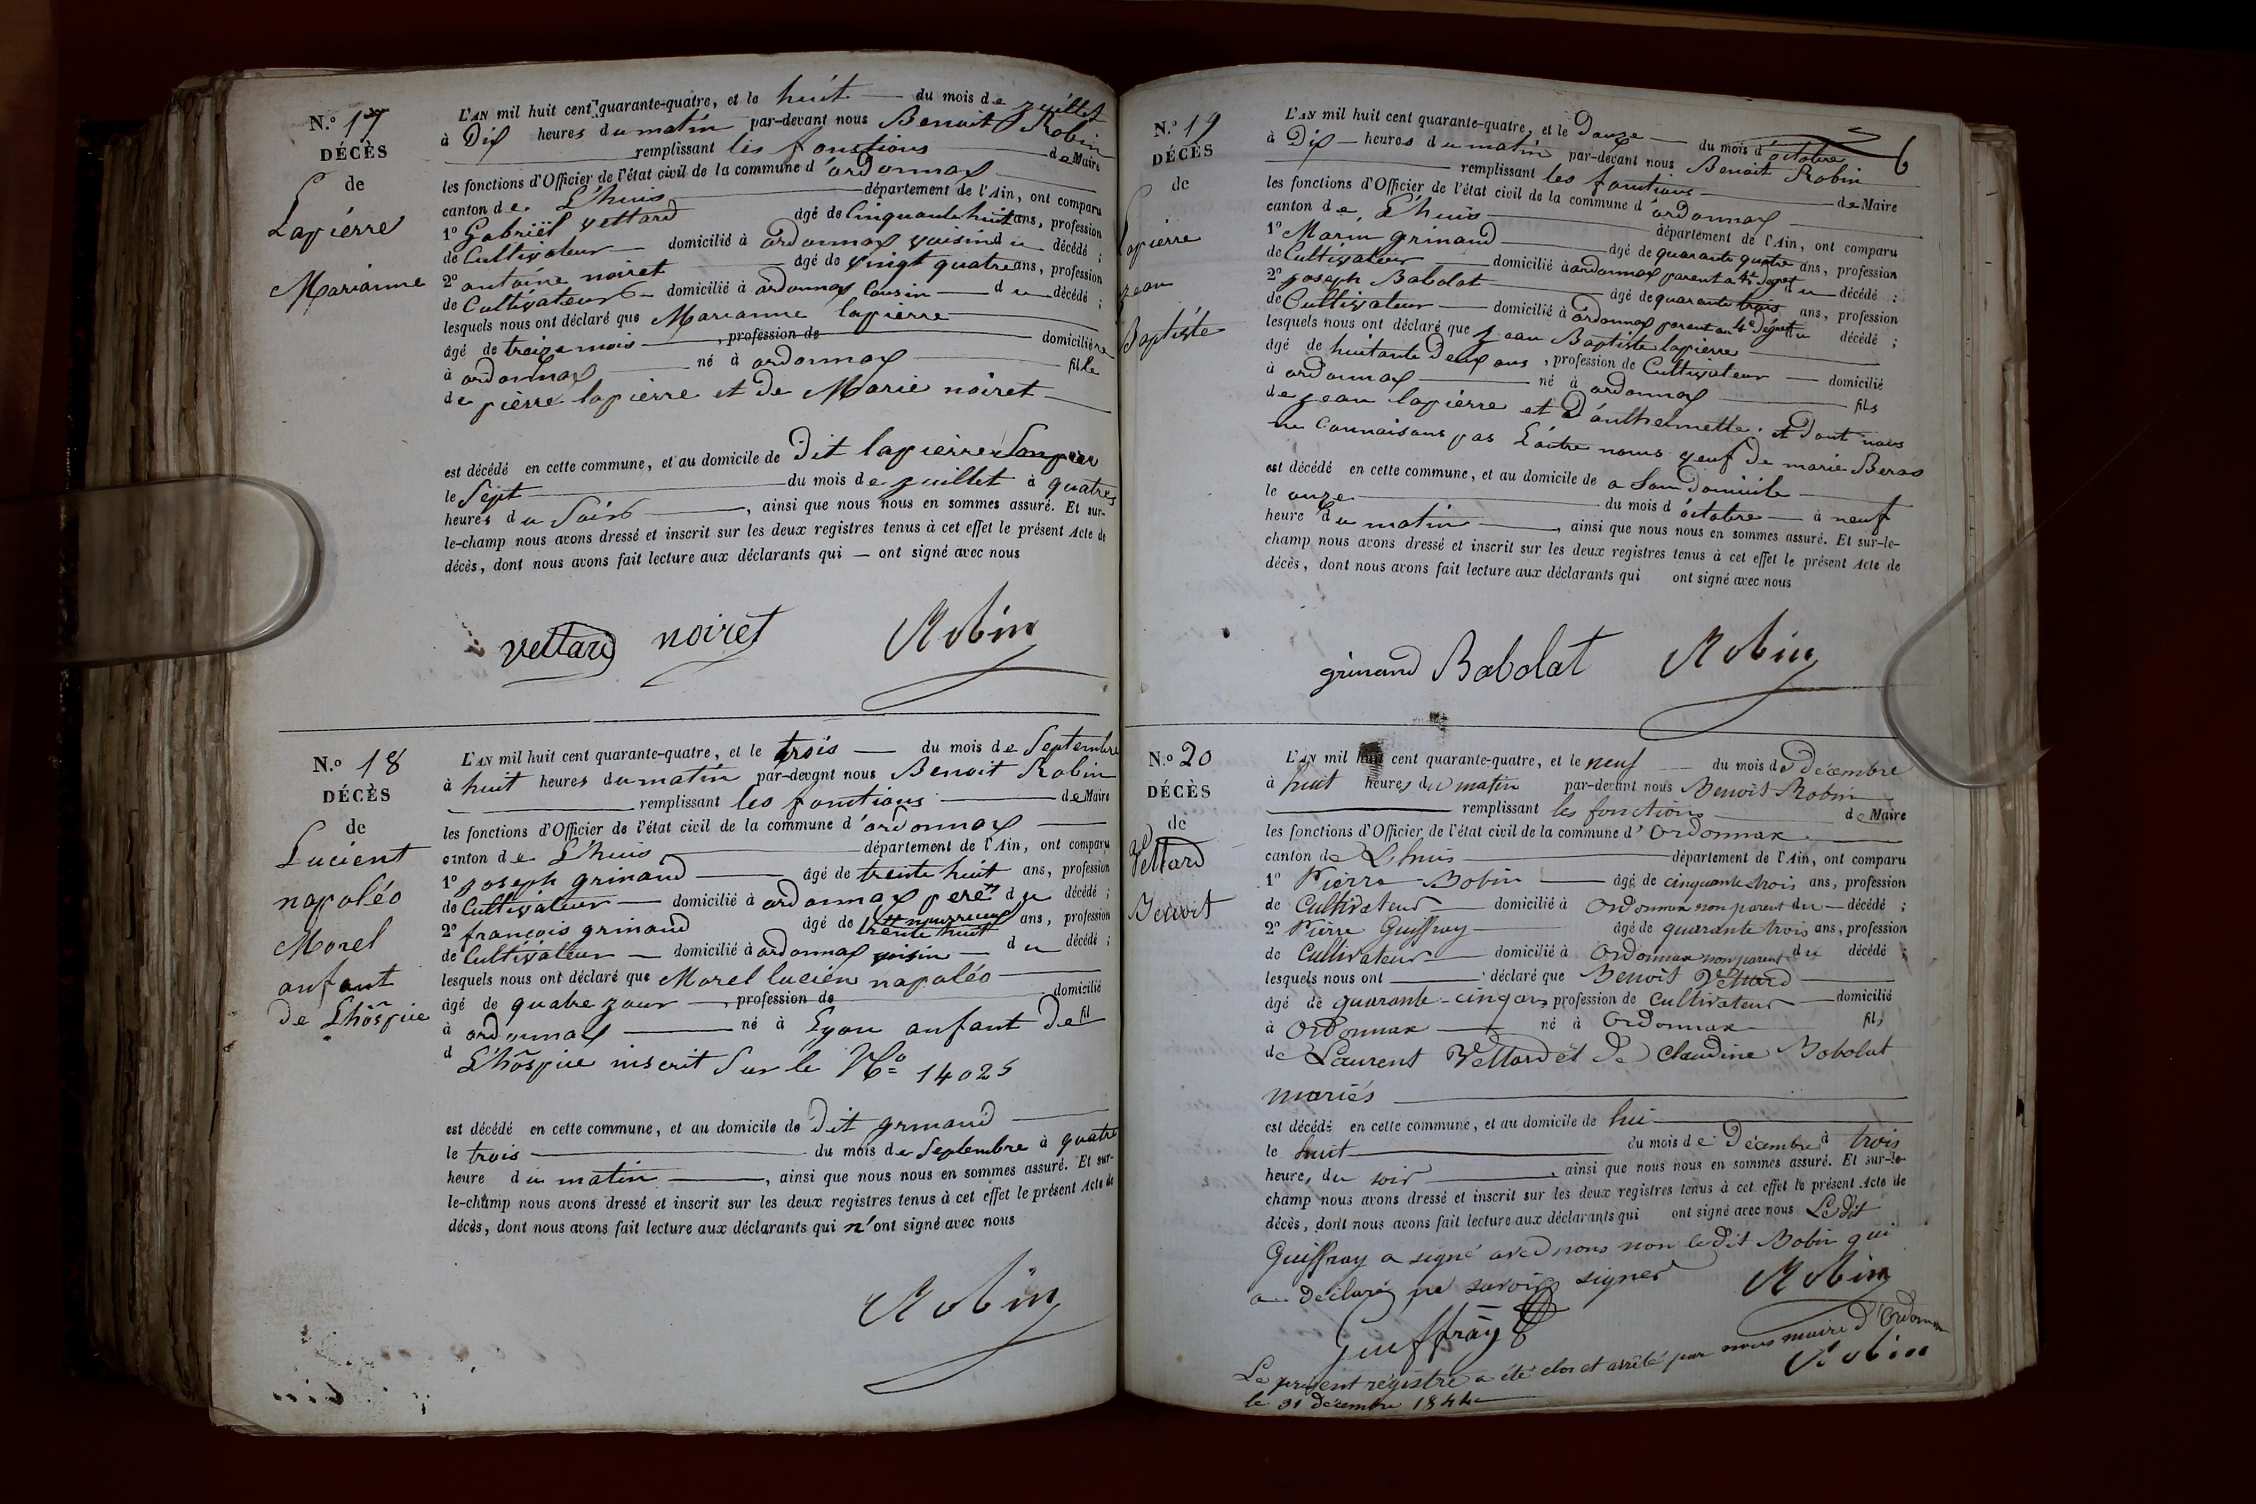 N.º 17
DÉCÈS
de
Lapiérre
Marianne
L'AN mil huit cent quarante-quatre, et le huit du mois de juillet
à Dix heures du matin par-devant nous Benoit Robin
remplissant les fonstions de Maire
les fonctions d'Officier de l'état civil de la commune d'ordonnax
canton de L'huis département de l'Ain, ont comparu
1º Gabriël vettard âgé de Cinquante huit ans, profession
de Cultivateur domicilié à ordonnax voisin du décédé ;
2º antoine noiret âgé de vingt quatre ans, profession
de Cultivateur domicilié à ordonnax Cousin du décédé ;
lesquels nous ont déclaré que Marianne lapierre
âgé de treize mois, profession de domiciliére
à ordonnax né à ordonnax fille
de piérre lapierre et de Marie noiret
est décédé en cette commune, et au domicile de Dit lapierre
le Sept du mois de juillet à quatres
heures du Soir, ainsi que nous nous en sommes assuré. Et sur-
le-champ nous avons dressé et inscrit sur les deux registres tenus à cet effet le présent Acte de
décès, dont nous avons fait lecture aux déclarants qui — ont signé avec nous
vettard noiret Robin
N.º 18
DÉCÈS
de
Lucient
napoléo
Morel
anfant
de Lhôspice
L'AN mil huit cent quarante-quatre, et le trois du mois de Septembre
à huit heures du matin par-devant nous Benoit Robin
remplissant les fonctions de Maire
les fonctions d'Officier de l'état civil de la commune d'ordonnax
canton de L'huis département de l'Ain, ont comparu
1º joseph grinand âgé de trente huit ans, profession
de Cultivateur domicilié à ordonnax pere nourricier du décédé ;
2º françois grinand âgé de trente huit ans, profession
de Cultivateur domicilié à ordonnax voisin du décédé ;
lesquels nous ont déclaré que Morel lucien napoléo
âgé de quatre jour, profession de domicilié
à ordonnax né à Lyon anfant De fil
d L'hôspice inscrit Sur le Nº 14025
est décédé en cette commune, et au domicile de Dit grinand
le trois du mois de Septembre à quatre
heure du matin, ainsi que nous nous en sommes assuré. Et sur-
le-champ nous avons dressé et inscrit sur les deux registres tenus à cet effet le présent Acte de
décès, dont nous avons fait lecture aux déclarants qui n'ont signé avec nous
Robin
N.º 19
DÉCÈS
de
Lapierre
jean
Baptiste
6
L'AN mil huit cent quarante-quatre, et le Douze du mois d'octobre
à Dix heures du matin par-devant nous Benoit Robin
remplissant les fonctions de Maire
les fonctions d'Officier de l'état civil de la commune d'ordonnax
canton de L'huis département de l'Ain, ont comparu
1º Marin grinand âgé de quarante quatre ans, profession
de Cultivateur domicilié à ordonnax parent a 4e degret du décédé :
2º joseph Babolat âgé de quarante trois ans, profession
de Cultivateur domicilié à ordonnax parent au 4e dégret du décédé ;
lesquels nous ont déclaré que jean Baptiste lapierre
âgé de huitante Deux ans, profession de Cultivateur domicilié
à ordonnax né à ordonnax fils
de jean lapiérre et D'anthelmette . et Dont nous
ne Connaisons pas L'autre noms veuf De marie Beros
est décédé en cette commune, et au domicile de a Son Domicile
le onze du mois d'octobre à neuf
heure du matin, ainsi que nous nous en sommes assuré. Et sur-le-
champ nous avons dressé et inscrit sur les deux registres tenus à cet effet le présent Acte de
décès, dont nous avons fait lecture aux déclarants qui ont signé avec nous
grinand Babolat Robin
N.º 20
DÉCÈS
de
Vettard
Benoit
L'AN mil huit cent quarante-quatre, et le neuf du mois de décembre
à huit heures du matin par-devant nous Benoit Robin
remplissant les fonctions de Maire
les fonctions d'Officier de l'état civil de la commune d'Ordonnax
canton de Lhuis département de l'Ain, ont comparu
1º Pierre Bobin âgé de cinquante trois ans, profession
de Cultivateur domicilié à Ordonnax non parent du décédé ;
2º Pierre Guiffray âgé de quarante trois ans, profession
de Cultivateur domicilié à Ordonnax non parent du décédé ;
lesquels nous ont déclaré que Benoit Vettard
âgé de quarante-cinq ans, profession de Cultivateur domicilié
à Ordonnax né à Ordonnax fils
de Laurent Vettard et de Claudine Bobolat
mariés
est décédé en cette commune, et au domicile de lui
le huit du mois de Décembre à trois
heures du soir, ainsi que nous nous en sommes assuré. Et sur-le-
champ nous avons dressé et inscrit sur les deux registres tenus à cet effet le présent Acte de
décès, dont nous avons fait lecture aux déclarants qui ont signé avec nous Le dit
Guiffray a signé avec nous non le dit Bobin qui
a déclaré ne savoir signer Robin
Guiffray
Le présent régistre a été clos et arrêté par nous maire d'Ordonnax
le 31 decembre 1844 Robin